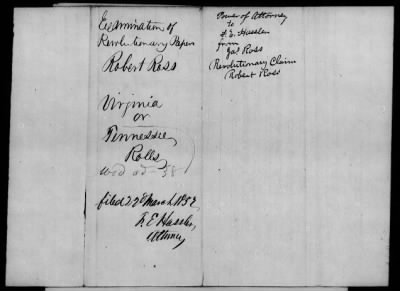 Examination of
Revolutionary Papers
Robert Ross
Virginia
or
Tennessee
Rolls
filed 22d March 1852
F. E. Hassler,
Attorney
Power of Attorney
to
F. E. Hassler
from
Jas Ross
(Revolutionary Claim
Robert Ross